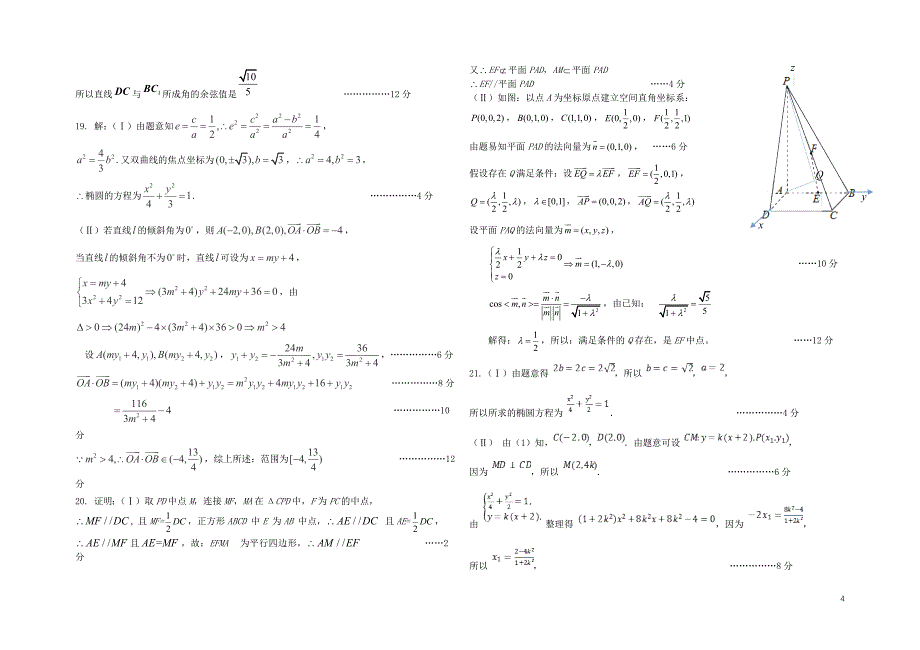 所以直线 DC 与 BC₁ 所成角的余弦值是 √10/5 ……………12分
19. 解:(Ⅰ)由题意知 e=c/a=1/2,∴e²=c²/a²=(a²-b²)/a²=1/4,
a²=4/3 b².又双曲线的焦点坐标为(0,±√3),b=√3,∴a²=4,b²=3,
∴椭圆的方程为 x²/4+y²/3=1. ……………4分
(Ⅱ)若直线l的倾斜角为0°,则A(-2,0),B(2,0),OA·OB=-4,
当直线l的倾斜角不为0°时,直线l可设为x=my+4,
{x=my+4 3x²+4y²=12 ⇒(3m²+4)y²+24my+36=0,由
Δ>0⇒(24m)²-4×(3m²+4)×36>0⇒m²>4
设A(my₁+4,y₁),B(my₂+4,y₂),y₁+y₂=-24m/(3m²+4),y₁y₂=36/(3m²+4),……………6分
OA·OB=(my₁+4)(my₂+4)+y₁y₂=m²y₁y₂+4my₁y₂+16+y₁y₂ ……………8分
=116/(3m²+4)-4 ……………10
分
∵m²>4,∴OA·OB∈(-4,13/4),综上所述:范围为[-4,13/4) ……………12
分
20. 证明:(Ⅰ)取PD中点M,连接MF,MA在ΔCPD中,F为PC的中点,
∴MF//DC,且MF=1/2 DC,正方形ABCD中E为AB中点,∴AE//DC 且AE=1/2 DC,
∴AE//MF且AE=MF,故:EFMA 为平行四边形,∴AM//EF ……2
分
又∴EF⊄平面PAD,AM⊂平面PAD
∴EF//平面PAD ……4分
(Ⅱ)如图:以点A为坐标原点建立空间直角坐标系:
P(0,0,2),B(0,1,0),C(1,1,0),E(0,1/2,0),F(1/2,1/2,1)
由题易知平面PAD的法向量为n=(0,1,0), ……6分
假设存在Q满足条件:设EQ=λEF,EF=(1/2,0,1),
Q=(λ/2,1/2,λ),λ∈[0,1],AP=(0,0,2),AQ=(λ/2,1/2,λ)
设平面PAQ的法向量为m=(x,y,z),
{λ/2 x+1/2 y+λz=0 z=0 ⇒m=(1,-λ,0) ……10分
cos<m,n>=m·n/|m||n|=-λ/√(1+λ²),由已知: λ/√(1+λ²)=√5/5
解得:λ=1/2,所以:满足条件的Q存在,是EF中点。 ……12分
21.(Ⅰ)由题意得 2b=2c=2√2,所以 b=c=√2,a=2,
所以所求的椭圆方程为 x²/4+y²/2=1. ……………4分
(Ⅱ) 由(1)知,C(-2,0),D(2,0).由题意可设CM:y=k(x+2),P(x₁,y₁),
因为 MD⊥CD,所以 M(2,4k). ……………6分
由 {x²/4+y²/2=1, y=k(x+2). 整理得 (1+2k²)x²+8k²x+8k²-4=0,因为 -2x₁=(8k²-4)/(1+2k²),
所以 x₁=(2-4k²)/(1+2k²), ……………8分
z
P
F
Q
A
E
B
y
D
C
x
4